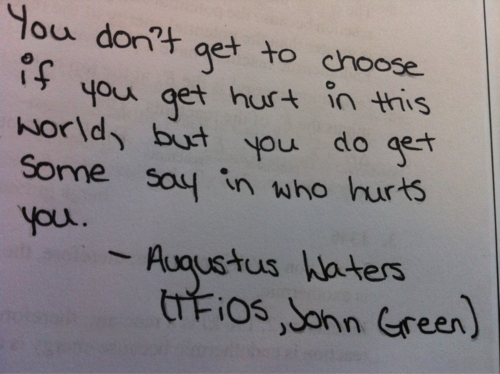 You don't get to choose
if you get hurt in this
world, but you do get
some say in who hurts
you.
- Augustus Waters
(TFiOS, John Green)